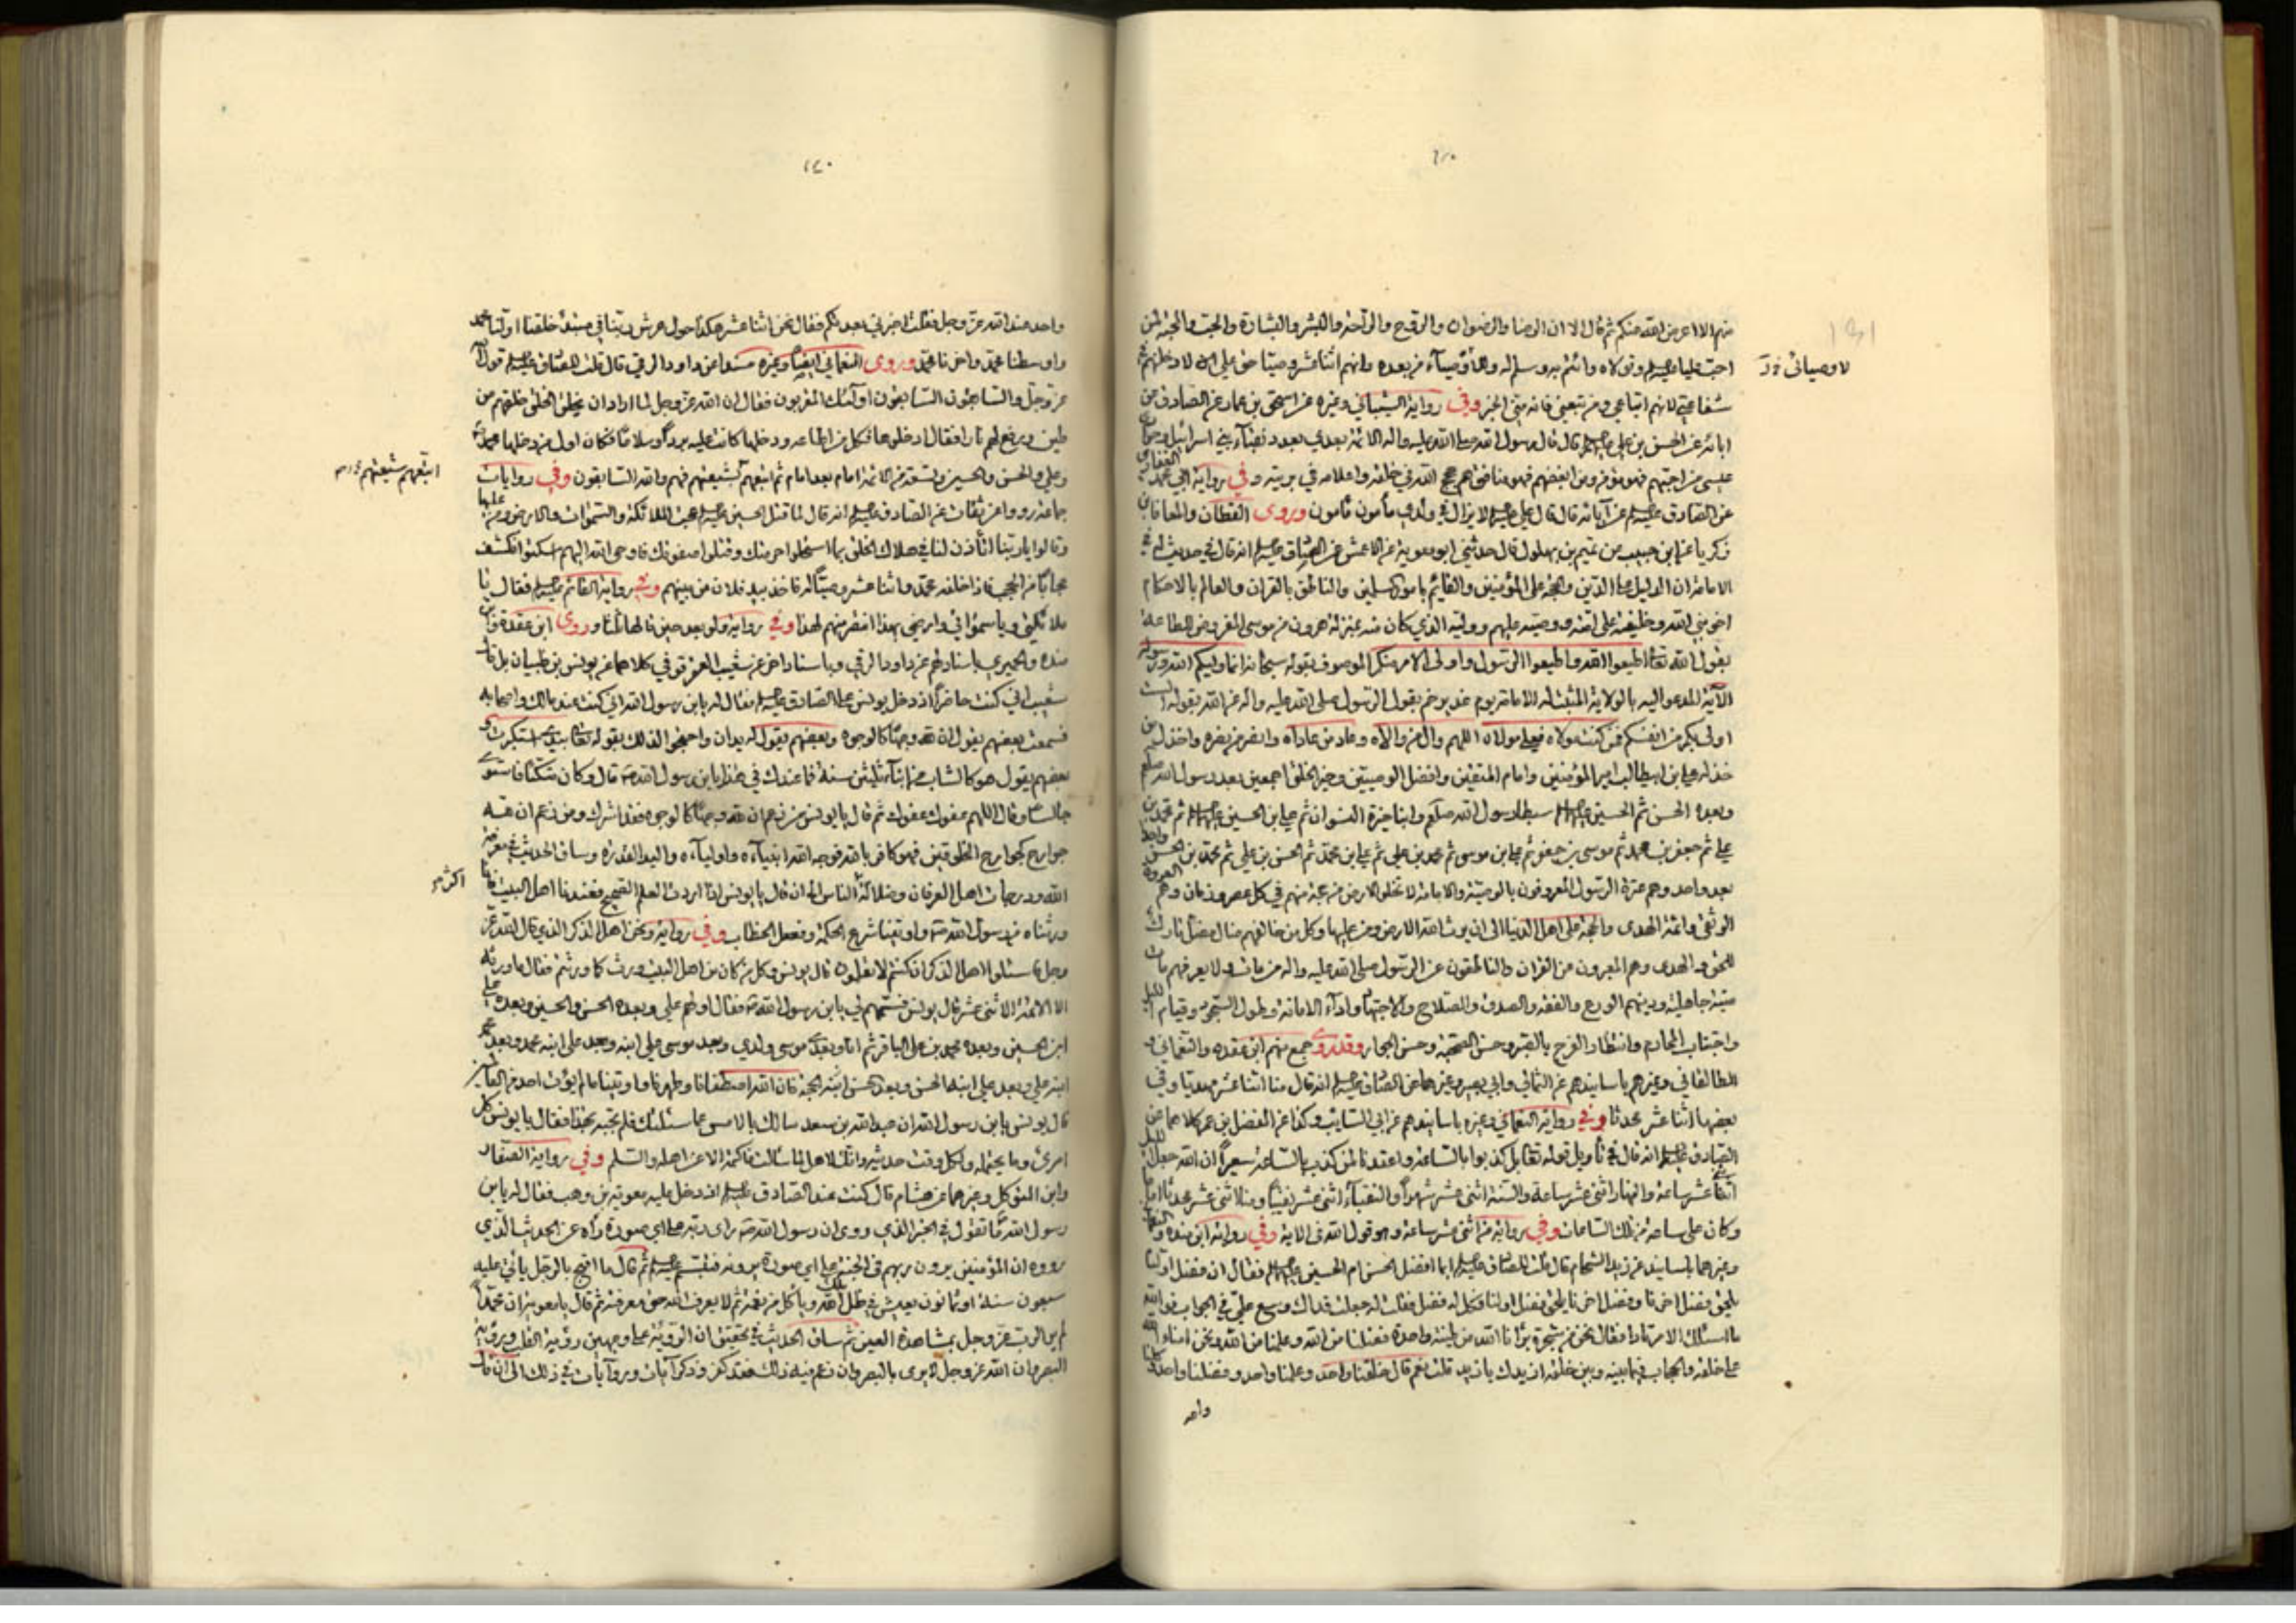 منهم الا اعرض الله عنكم ثم قال الا ان الرضا والرضوان والروح والراحة والبشر والبشارة والحب والمحبة لمن
احب عليا وتولاه وائتم به وسلم له وللأوصياء من بعده وانهم اثنا عشر وصيا حق علي ان لا دخلنهم في
لاوصيائى
شفاعتي لانهم اتباعي ومن تبعني فانه مني الخبر وفي رواية الشيباني وغيره عن اسحق بن عمار عن الصادق عن
ابائه عن الحسن بن علي قال قال رسول الله صلى الله عليه واله الائمة بعدي بعدد نقباء بني اسرائيل وحواري
عيسى من احبهم فهو مؤمن ومن ابغضهم فهو منافق هم حجج الله في خلقه واعلامه في بريته وفي رواية ابي محمد الغفاري
عن الصادق عن آبائه قال قال علي لا يزال في ولدي مأمون مأمون وروى القطان والمعاذي
زكريا عن ابن حبيب عن تميم بن بهلول قال حدثني ابو معوية عن الاعمش عن الصادق انه قال في حديث له في
الامامة ان الدليل على الدين والحجة على المؤمنين والقايم بامور المسلمين والناطق بالقران والعالم بالاحكام
اخو نبي الله وخليفته على امته ووصيه عليهم ووليه الذي كان منه بمنزلة هرون من موسى المفروض الطاعة
بقول الله تعالى اطيعوا الله واطيعوا الرسول واولى الامر منكم الموصوف بقوله سبحانه انما وليكم الله ورسوله
الآية المدعو اليه بالولاية المثبت له الامامة يوم غدير خم بقول الرسول صلى الله عليه واله عن الله بقوله الست
اولى بكم من انفسكم فمن كنت مولاه فعلي مولاه اللهم وال من والاه وعاد من عاداه وانصر من نصره واخذل من
خذله علي بن ابيطالب امير المؤمنين وامام المتقين وافضل الوصيين وخير الخلق اجمعين بعد رسول الله صلعم
وبعده الحسن ثم الحسين سبطا رسول الله صلعم وابنا خيرة النسوان ثم علي بن الحسين ثم محمد بن
علي ثم جعفر بن محمد ثم موسى بن جعفر ثم علي بن موسى ثم محمد بن علي ثم علي بن محمد ثم الحسن بن علي ثم محمد بن الحسن واحد
بعد واحد وهم عترة الرسول المعروفون بالوصية والامامة لا تخلو الارض من حجة منهم في كل عصر وزمان وهم العروة
الوثقى وائمة الهدى والحجة على اهل الدنيا الى ان يرث الله الارض ومن عليها وكل من خالفهم ضال مضل تارك
للحق والهدى وهم المعبرون عن القران والناطقون عن الرسول صلى الله عليه واله من مات ولا يعرفهم مات
ميتة جاهلية ودينهم الورع والعفة والصدق والصلاح والاجتهاد واداء الامانة وطول السجود وقيام الليل
واجتناب المحارم وانتظار الفرج بالصبر وحسن الصحبة وحسن الجوار وقد روى جمع منهم ابن عقده والنعماني و
الطالقاني وغيرهم باسانيدهم عن الثمالي وابي بصير وغيرهما عن الصادق انه قال منا اثنا عشر مهديا وفي
بعضها اثنا عشر محدثا وفي رواية النعماني وغيره باسانيدهم عن ابي السايب وكذا عن المفضل بن عمر كلاهما عن
الصادق انه قال في تأويل قوله تعالى بل كذبوا بالساعة واعتدنا لمن كذب بالساعة سعيرا ان الله جعل الليل
اثنى عشر ساعة والنهار اثنى عشر ساعة والسنة اثنى عشر شهرا والنقباء اثنى عشر نقيبا ومنا اثنى عشر محدثا
وكان علي ساعة من تلك الساعات وفي رواية من اثنى عشر ساعة وهو قول الله في الاية وفي رواية ابن منده و
وغيرهما بالمسانيد عن زيد الشحام قال قلت للصادق ايما افضل الحسن ام الحسين فقال ان فضل اولنا
يلحق فضل اخرنا وفضل اخرنا يلحق فضل اولنا وكل له فضل فقلت له جعلت فداك وسع علي في الجواب فوالله
ما اسئلك الا مرتادا فقال نحن من شجرة برأنا الله من طينة واحدة فضلنا من الله وعلمنا من الله ونحن امناء الله
على خلقه والحجاب فيما بينه وبين خلقه ازيدك يا زيد قلت نعم قال خلقنا واحد وعلمنا واحد وفضلنا واحد وكلنا
واحد
واحد عند الله عز وجل فقلت اخبرني بعددكم فقال نحن اثنا عشر هكذا حول عرش ربنا في مبتدأ خلقنا اولنا محمد
واوسطنا محمد واخرنا محمد وروى النعماني ايضا وغيره مسندا عن داود الرقي قال قلت للصادق قول الله
عز وجل والسابقون السابقون اولئك المقربون فقال ان الله عز وجل لما اراد ان يخلق الخلق خلقهم من
طين ورفع لهم نارا فقال ادخلوها فكل من اطاعه ودخلها كانت عليه بردا وسلاما فكان اول من دخلها محمد
وعلي والحسن والحسين وتسعة من الائمة امام بعد امام ثم اتبعهم بشيعتهم فهم والله السابقون وفي روايات
اتبعهم شيعتهم
جماعة رووا عن ثقات عن الصادق انه قال لما قتل الحسين عجت الملائكة والسموات والارض ومن عليها
وقالوا يا ربنا اتأذن لنا في هلاك الخلق بما استحلوا حرمتك وقتلوا صفوتك فاوحى الله اليهم اسكنوا فكشف
حجابا من الحجب فاذا خلفه محمد واثنا عشر وصيا له فاخذ بيد فلان من بينهم وفي رواية القائم فقال يا
ملائكتي ويا سمواتي وارضي بهذا انتصر منهم لهذا وفي رواية ولو بعد حين قالها ثلثا وروى ابن عقدة وابن
منده والحميري باسنادهم عن داود الرقي وباسناد اخر عن شعيب العقرقوفي كلاهما عن يونس بن ظبيان بل قال
شعيب اني كنت حاضرا اذ دخل يونس على الصادق فقال له يابن رسول الله اني كنت عند مالك واصحابه
فسمعت بعضهم يقول ان لله وجها كالوجوه وبعضهم يقول له يدان واحتجوا لذلك بقوله تعالى بيدي استكبرت و
بعضهم يقول هو كالشاب من ابناء ثلثين سنة فما عندك في هذا يابن رسول الله قال وكان متكئا فاستوى
جالسا وقال اللهم عفوك عفوك ثم قال يا يونس من زعم ان لله وجها كالوجوه فقد اشرك ومن زعم ان لله
جوارح كجوارح المخلوقين فهو كافر بالله فوجه الله انبياءه واولياءه واليد القدرة وساق الحديث في معرفة
الله ودرجات اهل العرفان وضلالة الناس الى ان قال يا يونس اذا اردت العلم الصحيح فعندنا اهل البيت فانا
اكثر
ورثناه من رسول الله واوتينا شرع الحكمة وفصل الخطاب وفي رواية ونحن اهل الذكر الذي قال الله عز
وجل فاسئلوا اهل الذكر ان كنتم لا تعلمون قال يونس وكل من كان من اهل البيت ورث كما ورثتم فقال ما ورثه
الا الائمة الاثنى عشر قال يونس فسمهم لي يابن رسول الله فقال اولهم علي وبعده الحسن والحسين وبعده علي
ابن الحسين وبعده محمد بن علي الباقر ثم انا وبعدي موسى ولدي وبعد موسى علي ابنه وبعد علي ابنه محمد وبعد محمد
ابنه علي وبعد علي ابنه الحسن وبعد الحسن ابنه الحجة فان الله اصطفانا وطهرنا واوتينا ما لم يؤت احد من العالمين
قال يونس يابن رسول الله ان عبدالله بن سعد سالك بالامس عما سئلتك فلم تجبه بهذا فقال يا يونس كل
امرئ وما يحتمله ولكل وقت حديثه وانك لاهل لما سالت فاكتمه الا عن اهله والسلم وفي رواية الصفار
وابن المتوكل وغيرهما عن هشام قال كنت عند الصادق اذ دخل عليه معوية بن وهب فقال له يابن
رسول الله ما تقول في الخبر الذي روي ان رسول الله راى ربه على اي صورة رآه وعن الحديث الذي
رووه ان المؤمنين يرون ربهم في الجنة على اي صورة يرونه فتبسم ثم قال ما اقبح بالرجل يأتي عليه
سبعون سنة او ثمانون يعيش في ملك الله وياكل من نعمه ثم لا يعرف الله حق معرفته ثم قال يا معوية ان محمدا
لم ير الرب عز وجل بمشاهدة العين ثم ساق الحديث في تحقيق ان الرؤية على وجهين رؤية القلب ورؤية
البصر وان الله عز وجل لا يرى بالبصر وان من زعم فيه ذلك فقد كفر وذكر آيات وروايات في ذلك الى ان قال